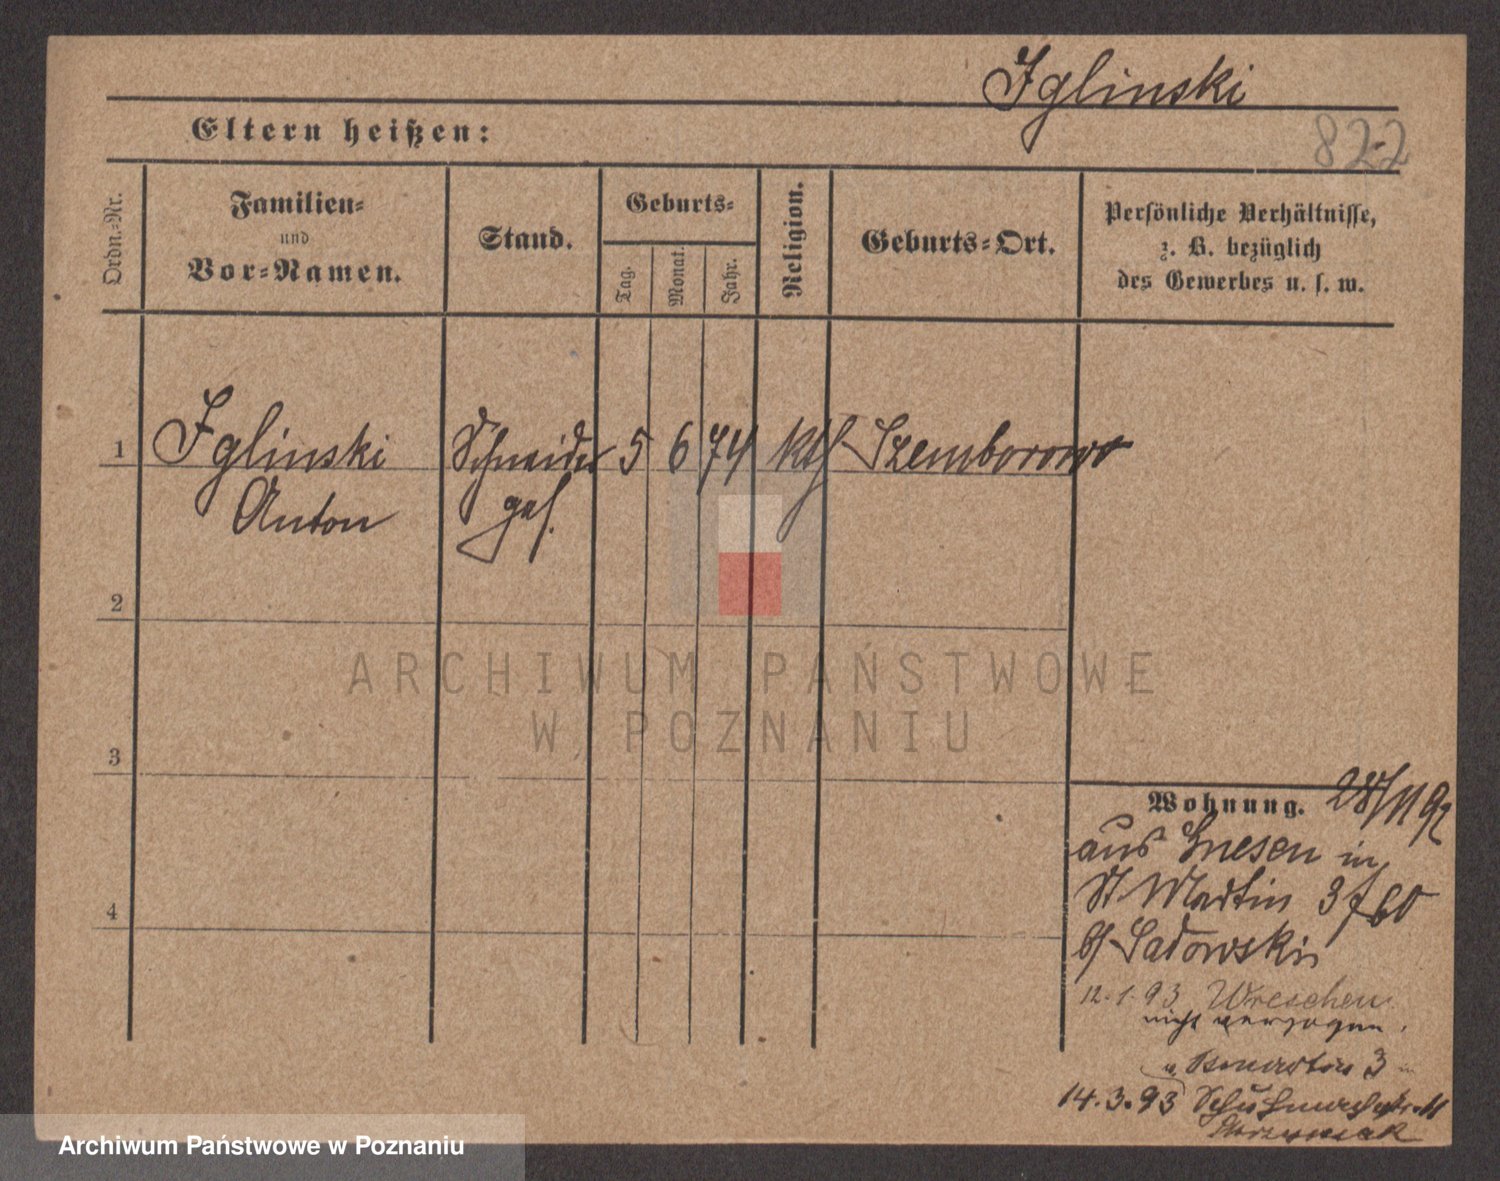 Iglinski
822
Eltern heißen:
Ordn.-Nr.
Familien-
und
Vor-Namen.
Stand.
Geburts-
Tag.
Monat.
Jahr.
Religion.
Geburts-Ort.
Persönliche Verhältnisse,
z. B. bezüglich
des Gewerbes u. s. w.
1 Iglinski Schneider 5 6 74 kth Szemborowo
Anton ges.
2
3
4
ARCHIWUM PAŃSTWOWE
W POZNANIU
Wohnung. 28/11 92
aus Gnesen in
St Martin 3
bei Sadowski
12.1.93 Wreschen
nicht verzogen.
3
14.3.93
Archiwum Państwowe w Poznaniu